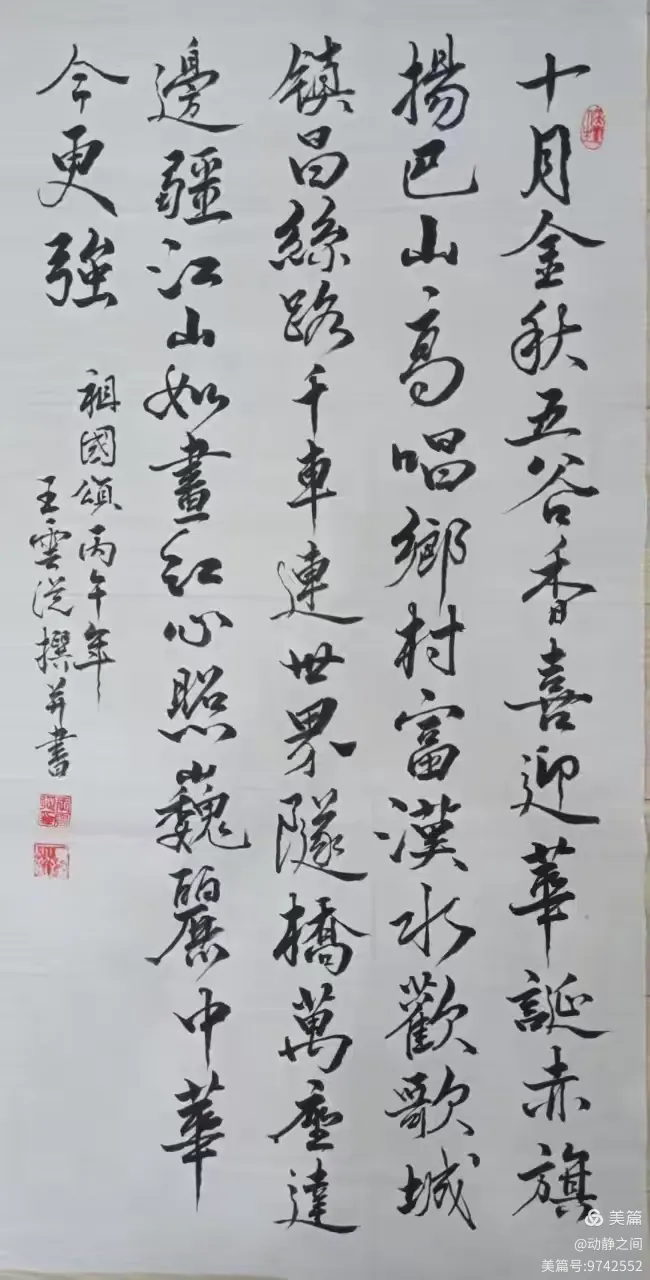 十月金秋五谷香喜迎華誕赤旗
揚巴山高唱鄉村富漢水歡歌城
鎮昌絲路千車連世界隧橋萬座達
邊疆江山如畫紅心照巍麗中華
今更強
祖國頌丙午年
王雲 撰并書
美篇
@动静之间
美篇号:9742552